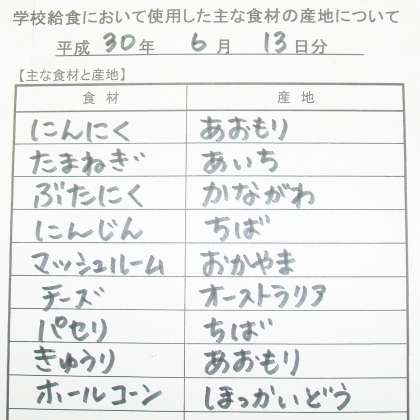 学校給食において使用した主な食材の産地について
平成 30 年 6 月 13 日分
【主な食材と産地】
食 材 産 地
にんにく あおもり
たまねぎ あいち
ぶたにく かながわ
にんじん ちば
マッシュルーム おかやま
チーズ オーストラリア
パセリ ちば
きゅうり あおもり
ホールコーン ほっかいどう